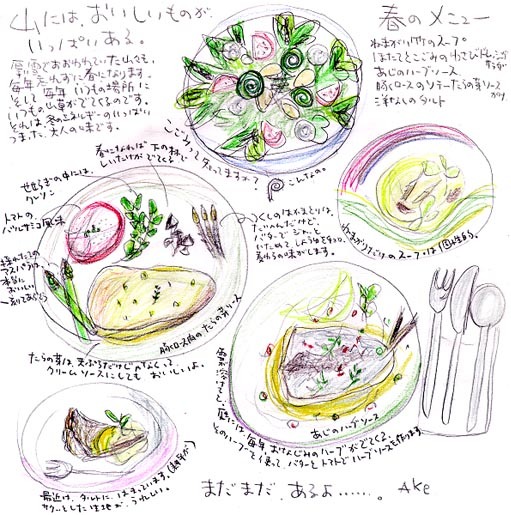 山には、おいしいものが
いっぱいある。
厚い雪でおおわれていた山々も、
毎年忘れずに春になります。
そして毎年いつもの場所に
いつもの山草がでてくるのです。
それは冬のエネルギーのいっぱい
つまった大人の味です。
春のメニュー
ねまがり竹のスープ
ほたてとこごみのわさびドレッシング
あじのハーブソース
豚ロースのソテーたらの芽ソース
洋なしのタルト
こごみって知ってますか?
こんなの。
春になれば下の林で
しいたけがでてくる
せせらぎの中には、
クレソン
トマトの、
バルサミコ風味
採れたての
アスパラは、
本当に
おいしい
つくしのほろにがさは、
バターでジャっと
いためてしょうゆをふり
豚ロース肉のたらの芽ソース
たらの芽は、天ぷらだけじゃなくって
クリームソースにしてもおいしいよ。
ねまがりだけのスープは
雪が溶けてくると、
庭には、毎年おなじみのハーブがでてくる。
そのハーブを使って、バターとトマトでハーブソースを作ります。
あじのハーブソース
最近は、タルトに、はまっています。
サクッとした生地が、うれしい。
まだまだ、あるよ……。
Ake